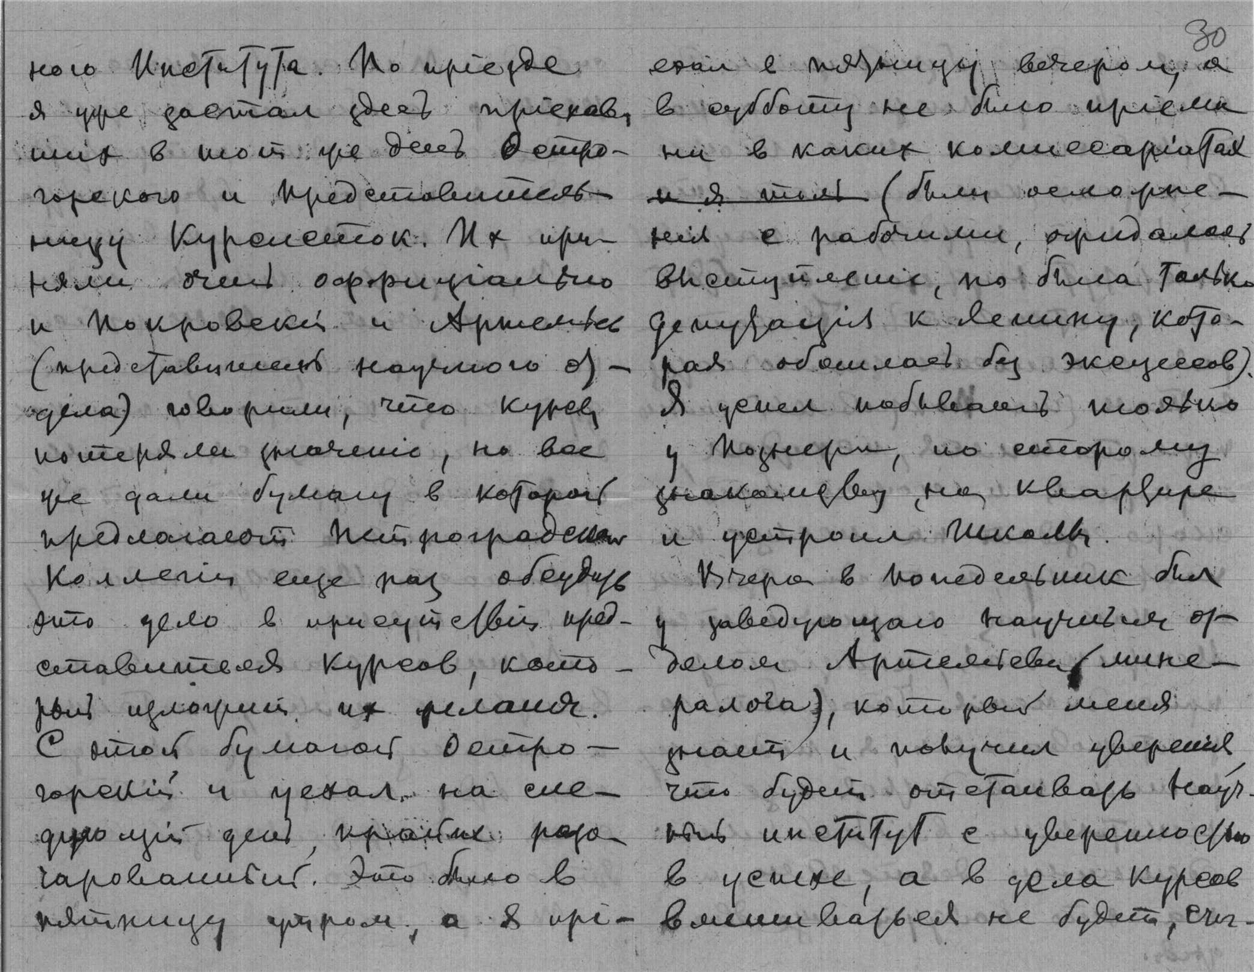 30
ного Института. По приезде
я уже застал здесь приехав-
ших в тот же день Остро-
горского и представитель-
ницу Курсисток. Их при-
няли очень оффициально
и Покровскій и Артемьев
(представитель научного от-
дела) говорили, что курсы
потеряли значеніе, но все
же дали бумагу в которой
предлагают Петроградской
Коллегіи еще раз обсудить
это дело в присутствіи пред-
ставителя Курсов, кото-
рый изложит их желания.
С этой бумагой Остро-
горскій и уехал на сле-
дующій день, крайне разо-
чарованный. Это было в
пятницу утром, а я прі-
ехал в пятницу вечером, а
в субботу не было пріема
ни в каких комиссаріатах
и я (были осложне-
нія с рабочими, ожидалось
выступленіе, но была только
депутація к Ленину, кото-
рая обошлась без эксцессов).
Я успел побывать только
у Познера, по старому
знакомству, на квартире
и устроил Школы.
Вчера в понедельник был
у заведующаго научным от-
делом Артемьева (мине-
ралога), который меня
знает и получил уверения,
что будет отстаивать Науч-
ный институт с уверенностью
в успехе, а в дела Курсов
вмешиваться не будет, счи-